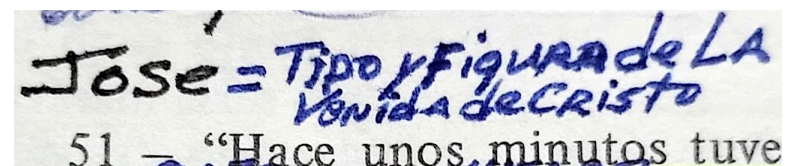 José = Tipo y Figura de LA
Venida de Cristo
51 — “Hace unos minutos tuve